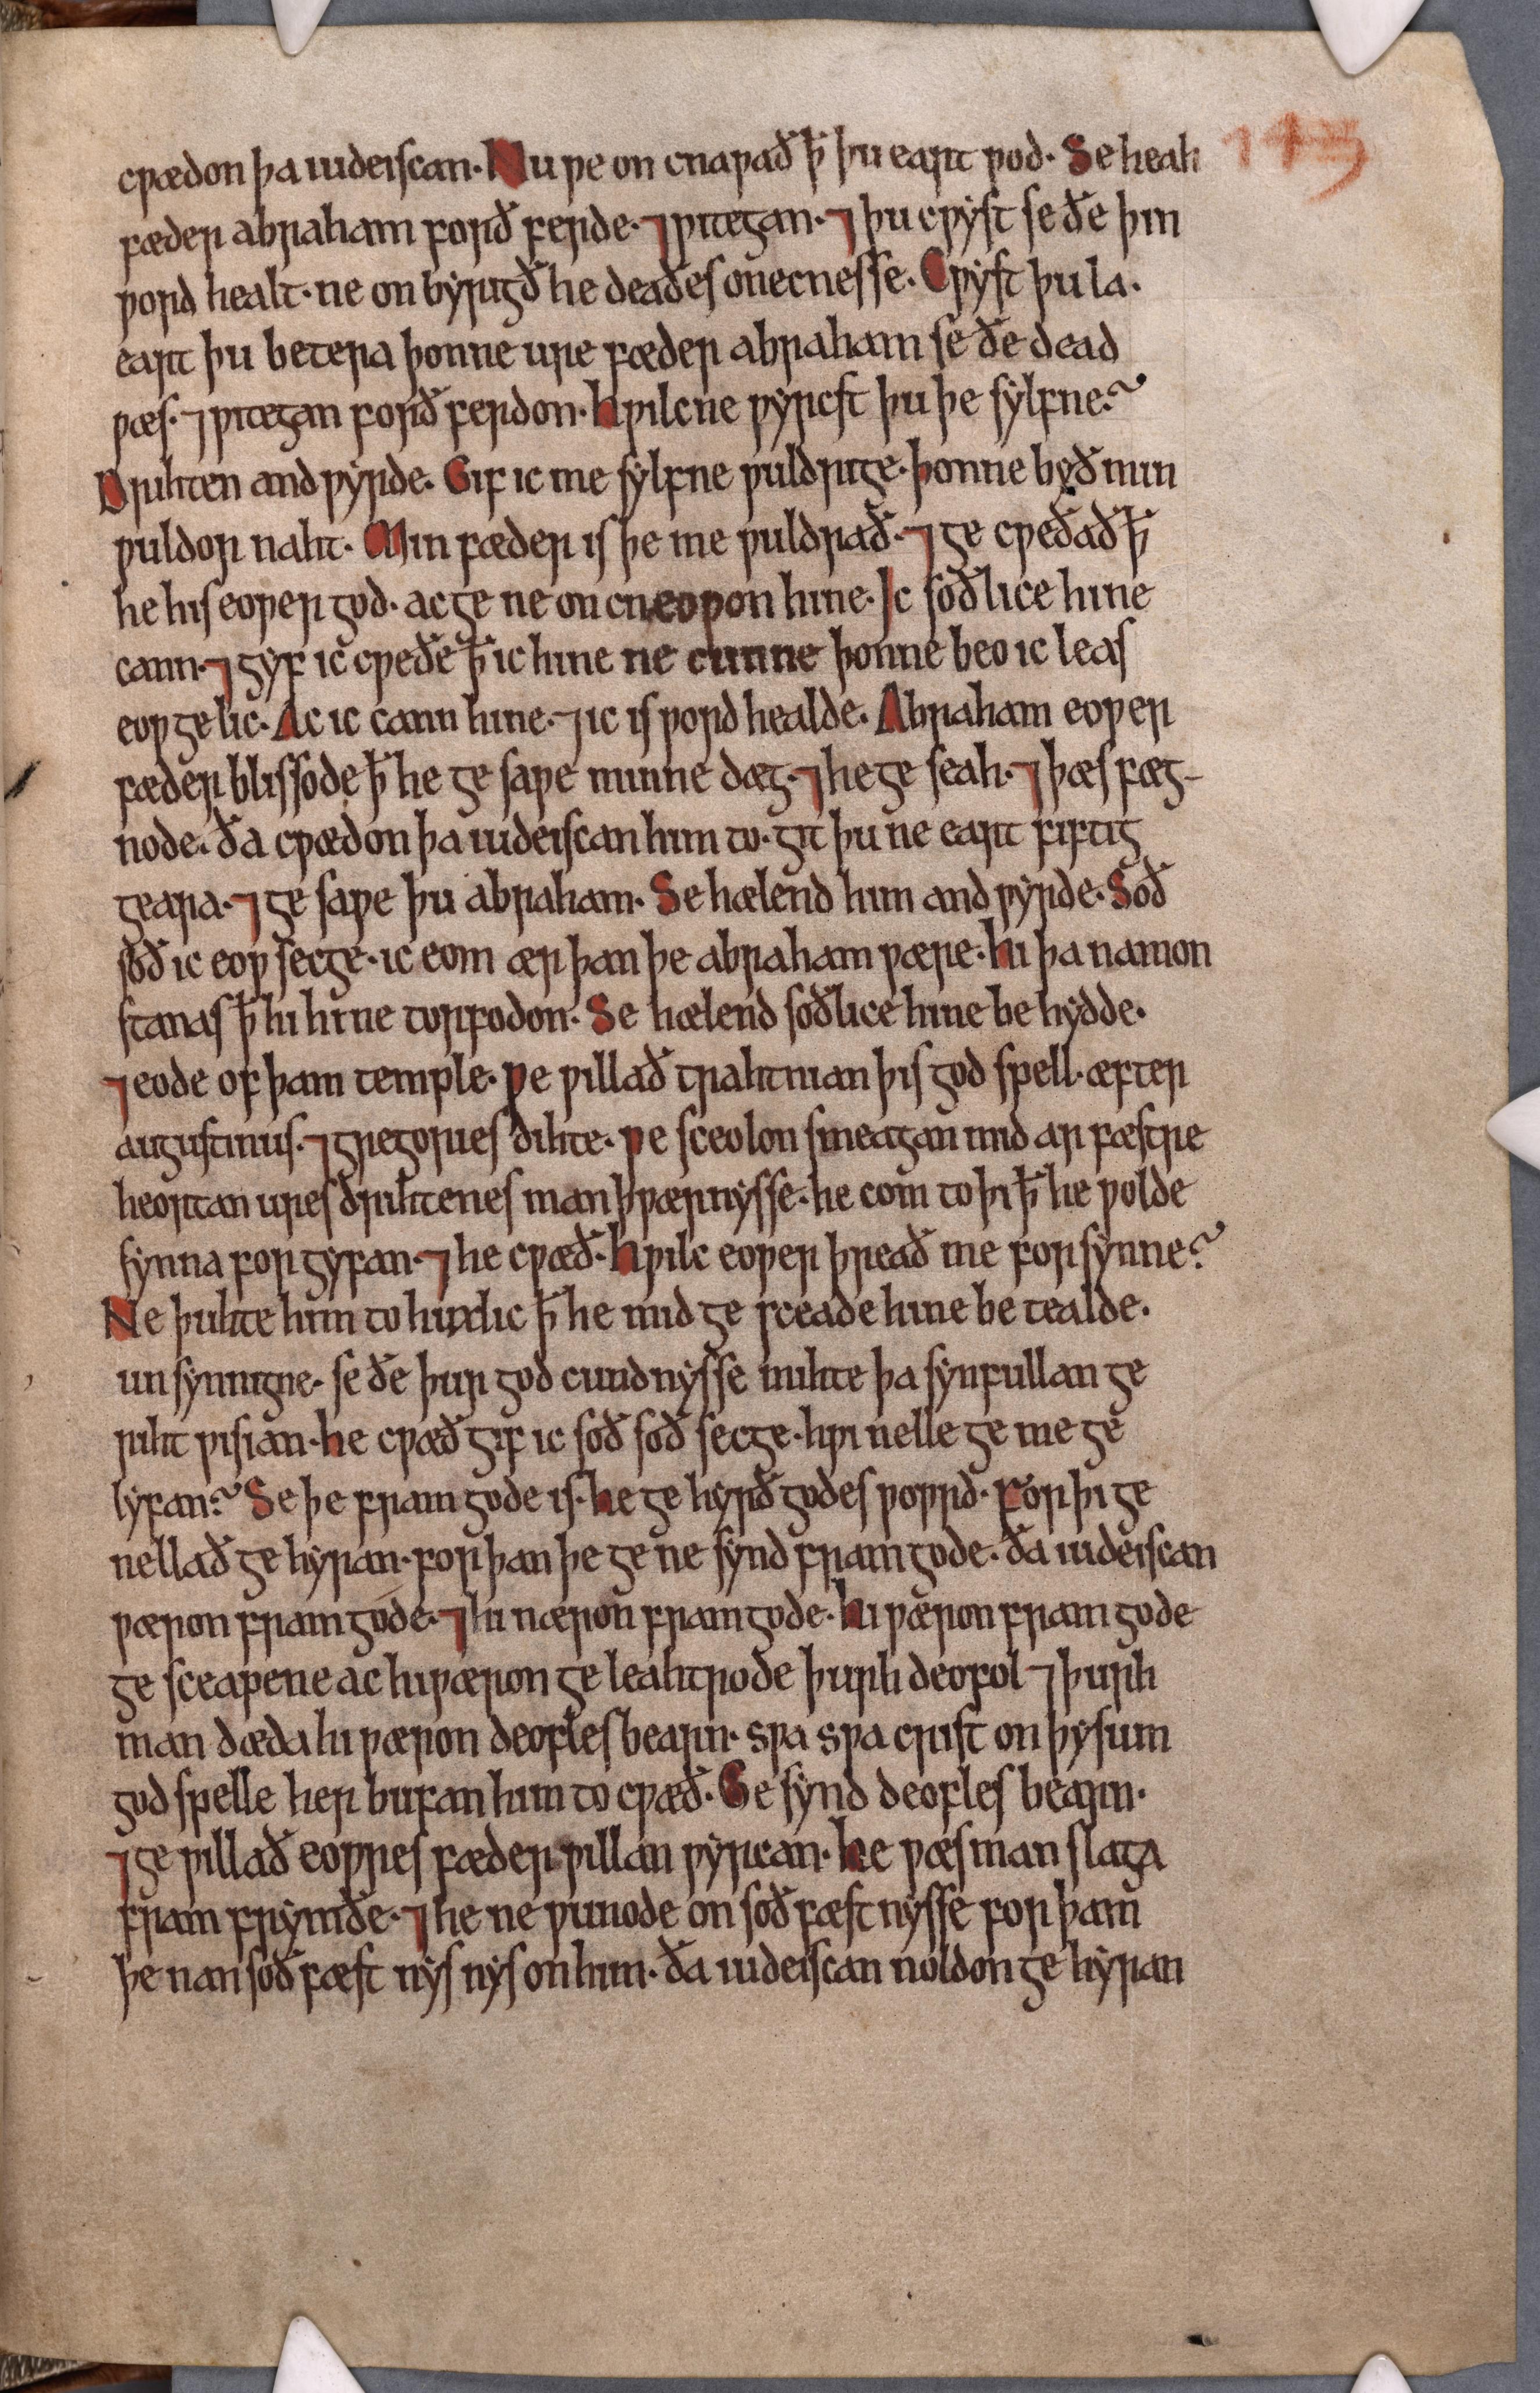 cƿædon þa iudeiſcan. Nu ƿe on cnaƿað ꝥ þu eart ƿod. Se heah 143
fæder abraham forð ferde. ⁊ ƿitegan. ⁊ þu cƿyſt ſe ðe þin
ƿord healt. ne on byrigð he deaðes on ecneſſe. Cƿyſt þu la.
eart þu betera þonne ure fæder abraham ſe ðe dead
ƿæs. ⁊ ƿitegan forð ferdon. Hƿilcne ƿyrcſt þu þe ſylfne?
Drihten andƿyrde. Gif ic me ſylfne ƿuldrige. þonne byð min
ƿuldor naht. Min fæder iſ þe me ƿuldrað. ⁊ ge cƿeðað ꝥ
he hiſ eoƿer god. ac ge ne on cneoƿon hine. Ic ſoðlice hine
cann. ⁊ gyf ic cƿeðe ꝥ ic hine ne cunne þonne beo ic leaſ
eoƿ gelic. Ac ic cann hine. ⁊ ic iſ ƿord healde. Abraham eoƿer
fæder bliſſode ꝥ he ge ſaƿe minne dæg. ⁊ he ge ſeah. ⁊ þæs fæg-
node. ða cƿædon þa iudeiſcan him to. git þu ne eart fiftig
geara. ⁊ ge ſaƿe þu abraham. Se hælend him andƿyrde. Soð
ſoð ic eoƿ ſecge. ic eom ær þan þe abraham ƿære. hi þa namon
ſtanaſ ꝥ hi hine torfodon. Se hælend ſoðlice hine be hydde.
⁊ eode of þam temple. ƿe ƿillað trahtnian þiſ god ſpell. æfter
auguſtinus. ⁊ gregories dihte. ƿe ſceolon ſmeagan mid ar fæſtre
heortan ures drihtenes man þƿærnyſſe. he com to þi ꝥ he ƿolde
ſynna for gyfan. ⁊ he cƿæð. hƿilc eoƿer þreað me for ſynne?
Ne þuhte him to huxlic ꝥ he mid ge ſceade hine be tealde.
un ſynnigne. ſe ðe þur god cundnyſſe mihte þa ſynfullan ge
riht ƿiſian. he cƿæð gif ic ſoð ſoð ſecge. hƿi nelle ge me ge
lyfan? Se þe fram gode is. he ge hyrð godes ƿoƿrd. For þi ge
nellað ge hyran. for þan þe ge ne ſynd fram gode. ða iudeiſcan
ƿæron fram gode. ⁊ hi næron fram gode. hi ƿæron fram gode
ge ſceapene ac hi ƿæron ge leahtrode þurh deofol ⁊ þurh
man dæda hi ƿæron deofles bearn. sƿa sƿa criſt on þyſum
god ſpelle her bufan him to cƿæð. Ge ſynd deofleſ bearn.
⁊ ge ƿillað eoƿres fæder ƿillan ƿyrcan. he ƿæs man ſlaga
fram frymðe. ⁊ he ne ƿunode on ſoð fæſtnyſſe for þam
þe nan ſoð fæſt nyſ nyſ on him. ða iudeiſcan noldon ge hyran